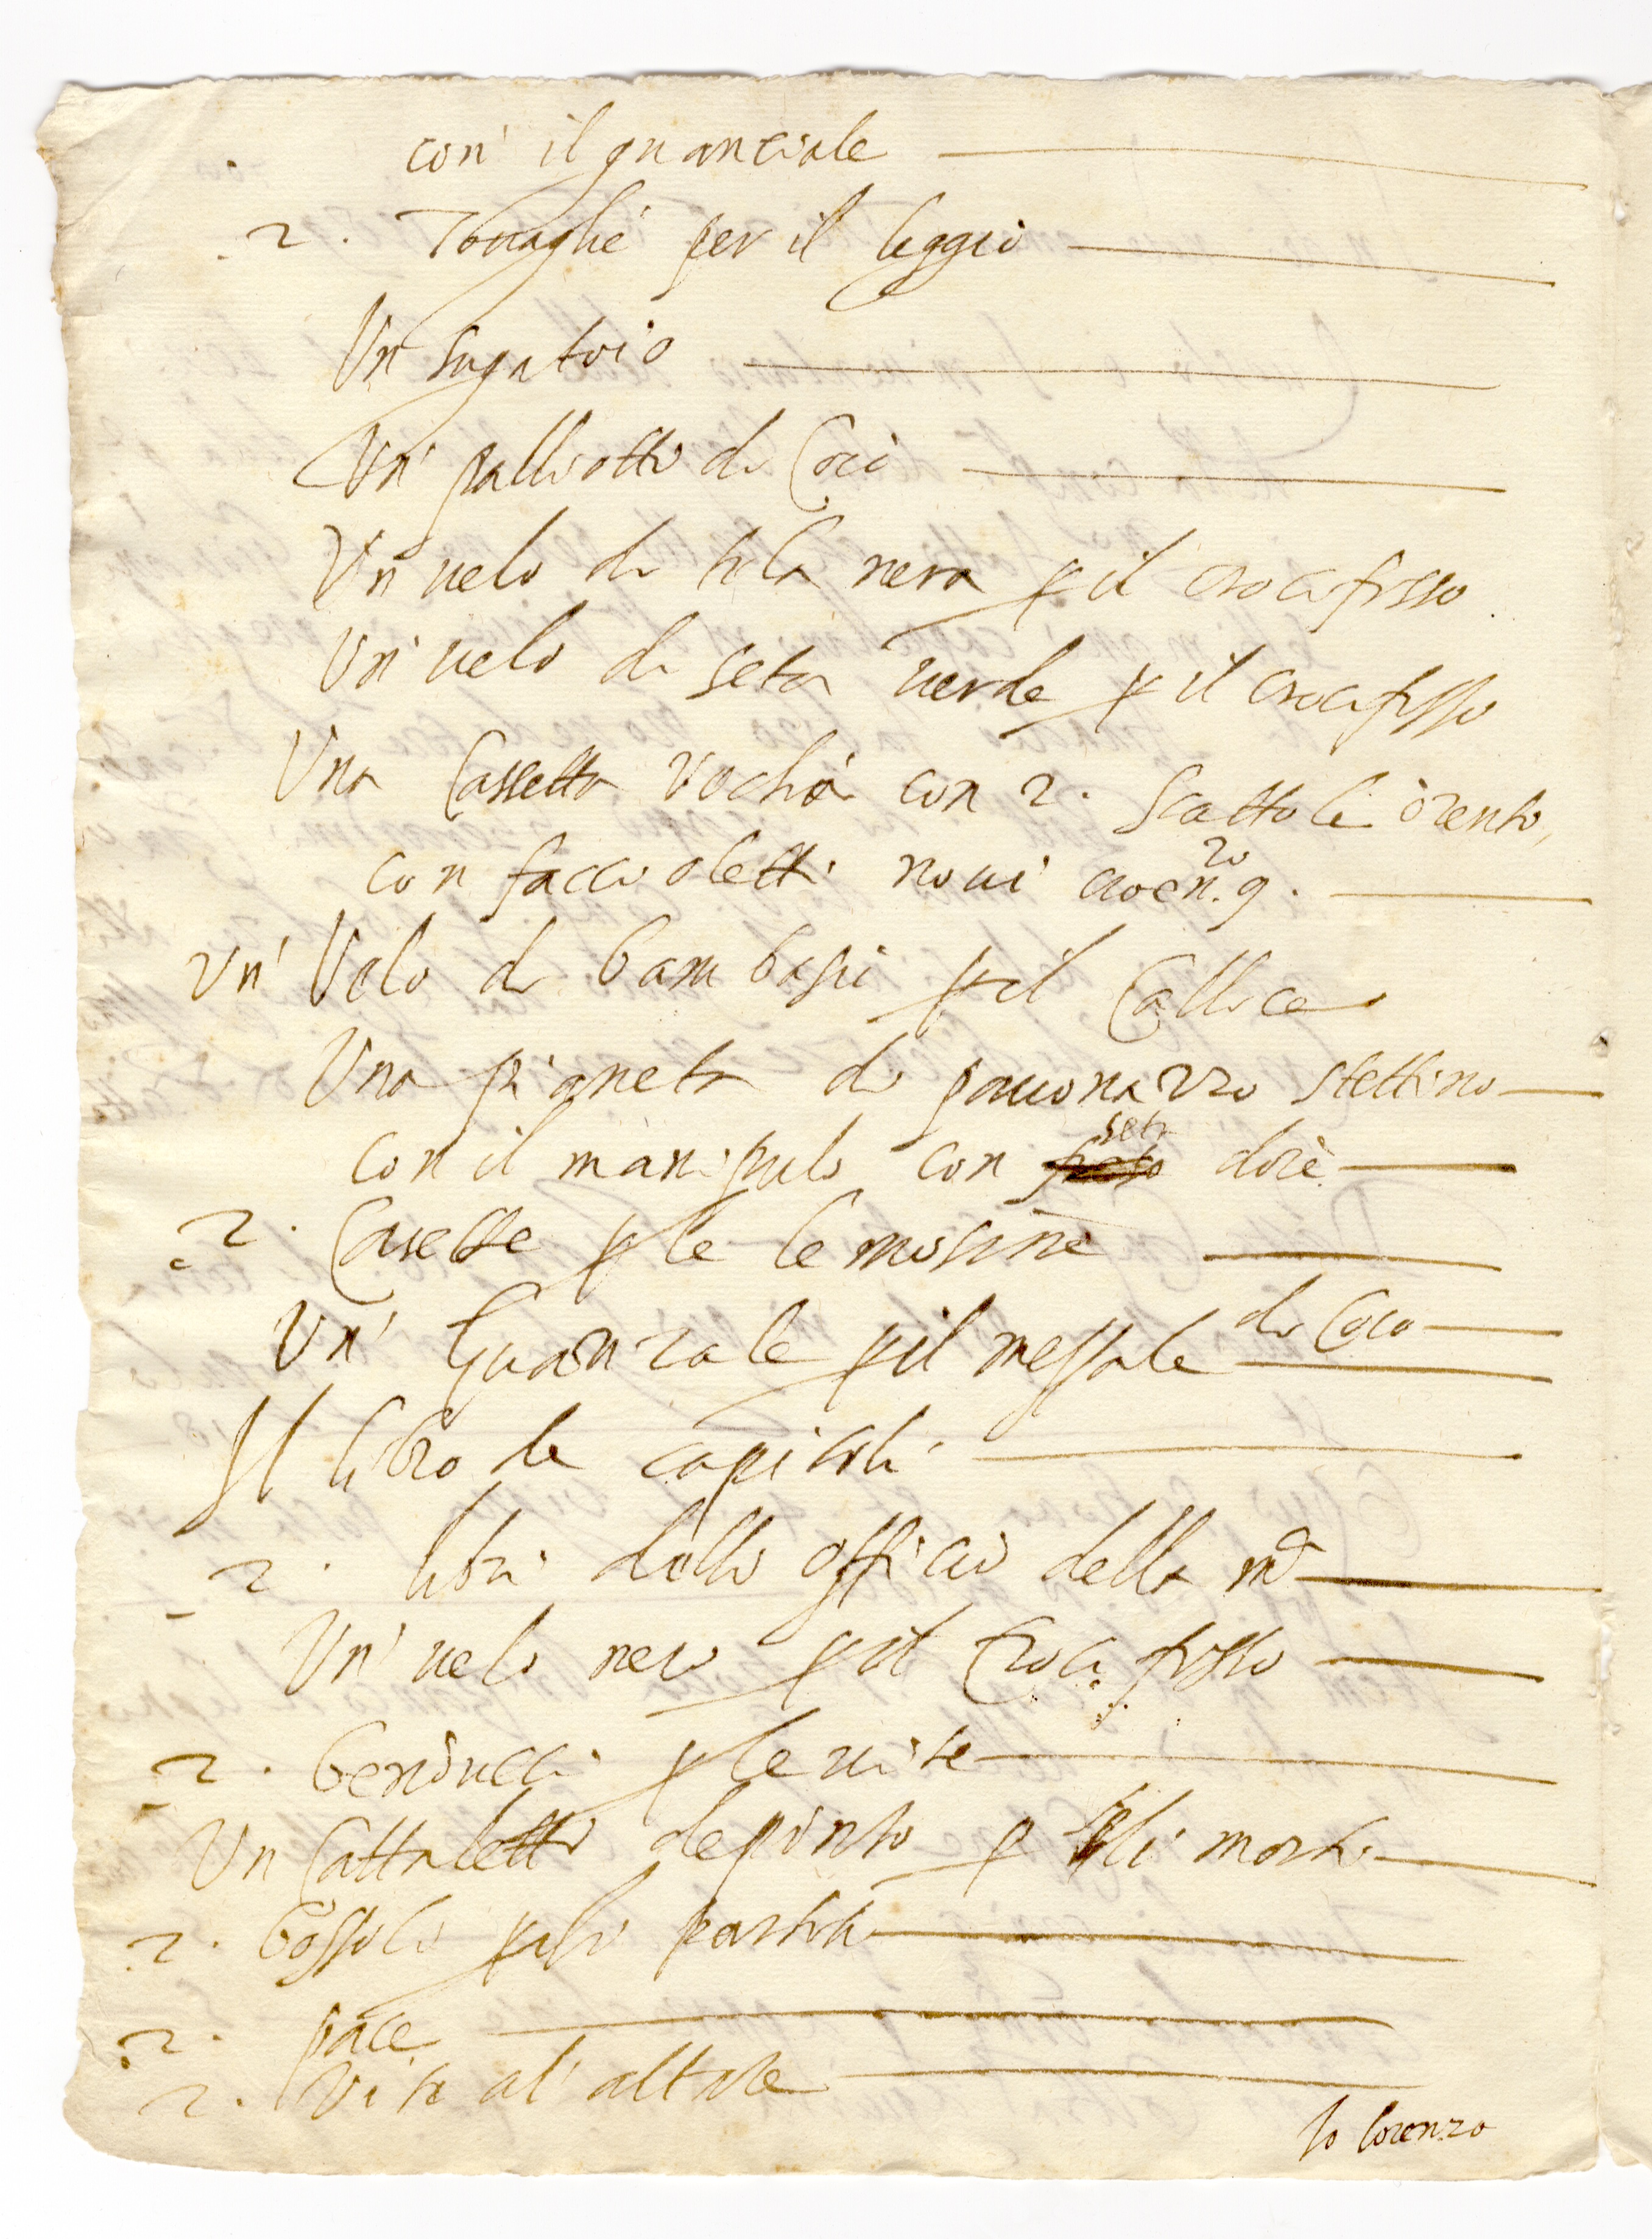 con' il guanciale
2. Tovaglie per il leggio
Un sugatoio
Un' palliotto di Coio
Un velo di tela nera p il crocifisso
Un' velo di seta verde p il crocifisso
Una Cassetta vechia con 2. Scattole drento,
con faccioletti novi cioe n.ro 9.
Un' Velo di bambagia p il Callice
Una pianeta di pauonazzo stettino
con il manipulo con seta dore
2. Casette p le lemosine
Un' Guanzale p il messale di Coio
Il libro de capitoli
2. libri dello officio della md
Un' velo nero p il Crocifisso
2. p le vite
Un Cattaletto depinto p li morti
2. bossoli p li partiti
2. pace
2. Vite al' altare
Io Lorenzo